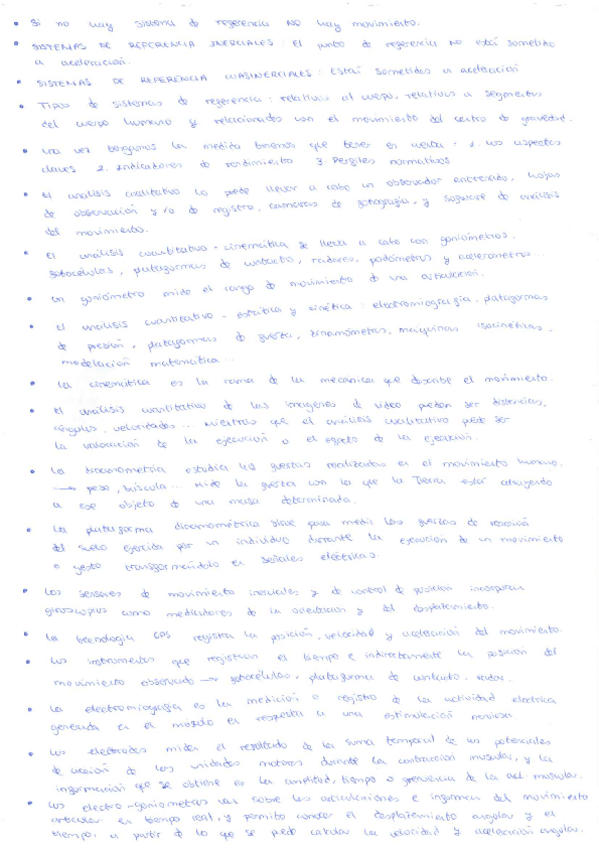 • Si no hay sistema de referencia NO hay movimiento.
• SISTEMAS DE REFERENCIA INERCIALES: El punto de referencia NO está sometido
a aceleración.
• SISTEMAS DE REFERENCIA NO INERCIALES: Está sometidos a aceleración
• Tipos de sistemas de referencia: relativos al cuerpo, relativos a segmentos
del cuerpo humano y relacionados con el movimiento del centro de gravedad.
• Una vez tengamos la medida tenemos que tener en cuenta: 1. Los aspectos
claves 2. Indicadores de rendimiento 3. Perfiles normativos
• El análisis cualitativo lo puede llevar a cabo un observador entrenado, hojas
de observación y/o de registro, cámaras de fotografía, y software de análisis
del movimiento.
• El análisis cuantitativo - cinemática se lleva a cabo con goniómetros,
fotocélulas, plataformas de contacto, radares, podómetros y acelerometros...
• Un goniómetro mide el rango de movimiento de una articulación.
• El análisis cuantitativo - estática y cinética: electromiografía, plataformas
de presión, plataformas de fuerza, dinamómetros, máquinas isocinéticas,
modelación matemática...
• La cinemática es la rama de la mecánica que describe el movimiento.
• El análisis cuantitativo de las imágenes de video pueden ser distancias,
ángulos, velocidades... Mientras que el análisis cualitativo puede ser
la valoración de la ejecución o el efecto de la ejecución.
• La dinamometría estudia las fuerzas realizadas en el movimiento humano.
→ peso, báscula... Mide la fuerza con la que la Tierra está atrayendo
a ese objeto de una masa determinada.
• La plataforma dinamométrica sirve para medir las fuerzas de reacción
del suelo ejercida por un individuo durante la ejecución de un movimiento
o gesto transformándolo en señales eléctricas.
• Los sensores de movimiento inerciales y de control de posición incorporan
giroscopios como medidores de la orientación y del desplazamiento.
• La tecnología GPS registra la posición, velocidad y aceleración del movimiento.
• Los instrumentos que registran el tiempo e indirectamente la posición del
movimiento observado → fotocélulas, plataforma de contacto, radar.
• La electromiografía es la medición o registro de la actividad eléctrica
generada en el músculo en respuesta a una estimulación nerviosa
• Los electrodos miden el resultado de la suma temporal de los potenciales
de acción de las unidades motoras durante la contracción muscular, y la
información que se obtiene es la amplitud, tiempo o frecuencia de la act. muscular.
• Los electro-goniometros van sobre las articulaciones e informan del movimiento
articular en tiempo real, y permite conocer el desplazamiento angular y el
tiempo, a partir de lo que se puede calcular la velocidad y aceleración angular.